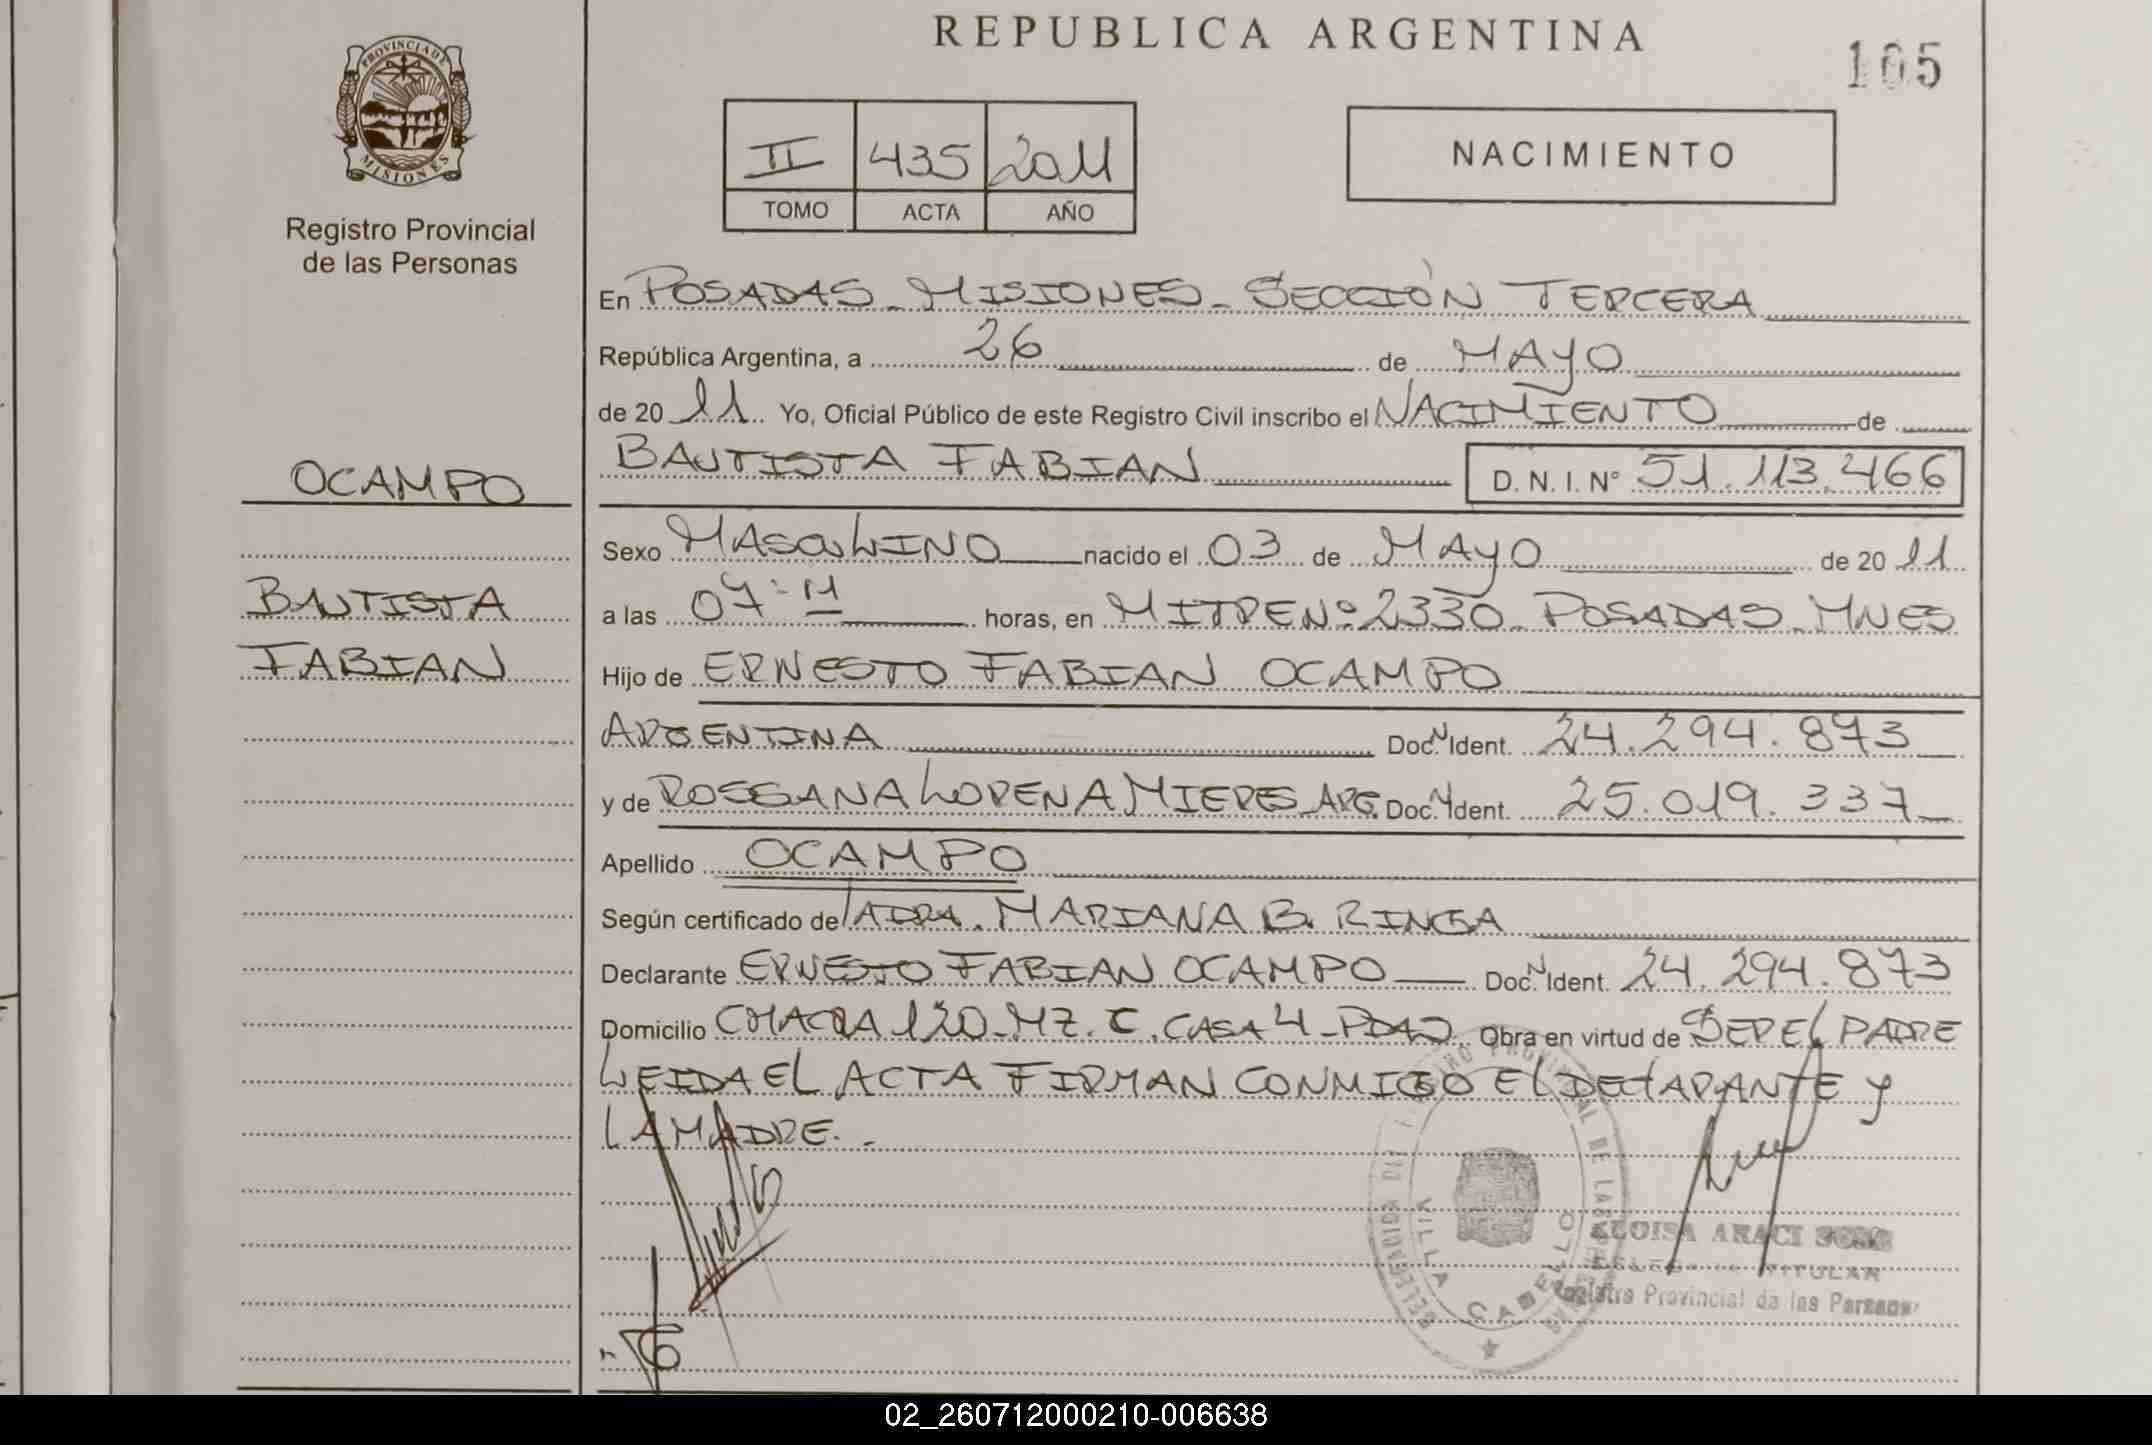 REPUBLICA ARGENTINA
105
PROVINCIA DE
MISIONES
Registro Provincial
de las Personas
II 435 2011
TOMO ACTA AÑO
NACIMIENTO
En POSADAS - MISIONES - SECCIÓN TERCERA
República Argentina, a 26 de MAYO
de 20 11 Yo, Oficial Público de este Registro Civil inscribo el NACIMIENTO de
BAUTISTA FABIAN D. N. I. Nº 51.113.466
OCAMPO
BAUTISTA
FABIAN
Sexo MASCULINO nacido el 03 de MAYO de 20 11
a las 07:11 horas, en MITRE Nº 2330 - POSADAS - MNES
Hijo de ERNESTO FABIAN OCAMPO
ARGENTINA Doc. Nº Ident. 24.294.873
y de ROSSANA LORENA MIERES ARG. Doc. Nº Ident. 25.019.337
Apellido OCAMPO
Según certificado de MARIANA B. RINGA
Declarante ERNESTO FABIAN OCAMPO Doc. Nº Ident. 24.294.873
Domicilio CHACRA 120 - MZ. C. CASA 4 - PDAS Obra en virtud de SER EL PADRE
LEIDA EL ACTA FIRMAN CONMIGO EL DECLARANTE Y
LA MADRE. -
VILLA CABELLO
ARACI
TITULAR
Registro Provincial de las Personas
02_260712000210-006638